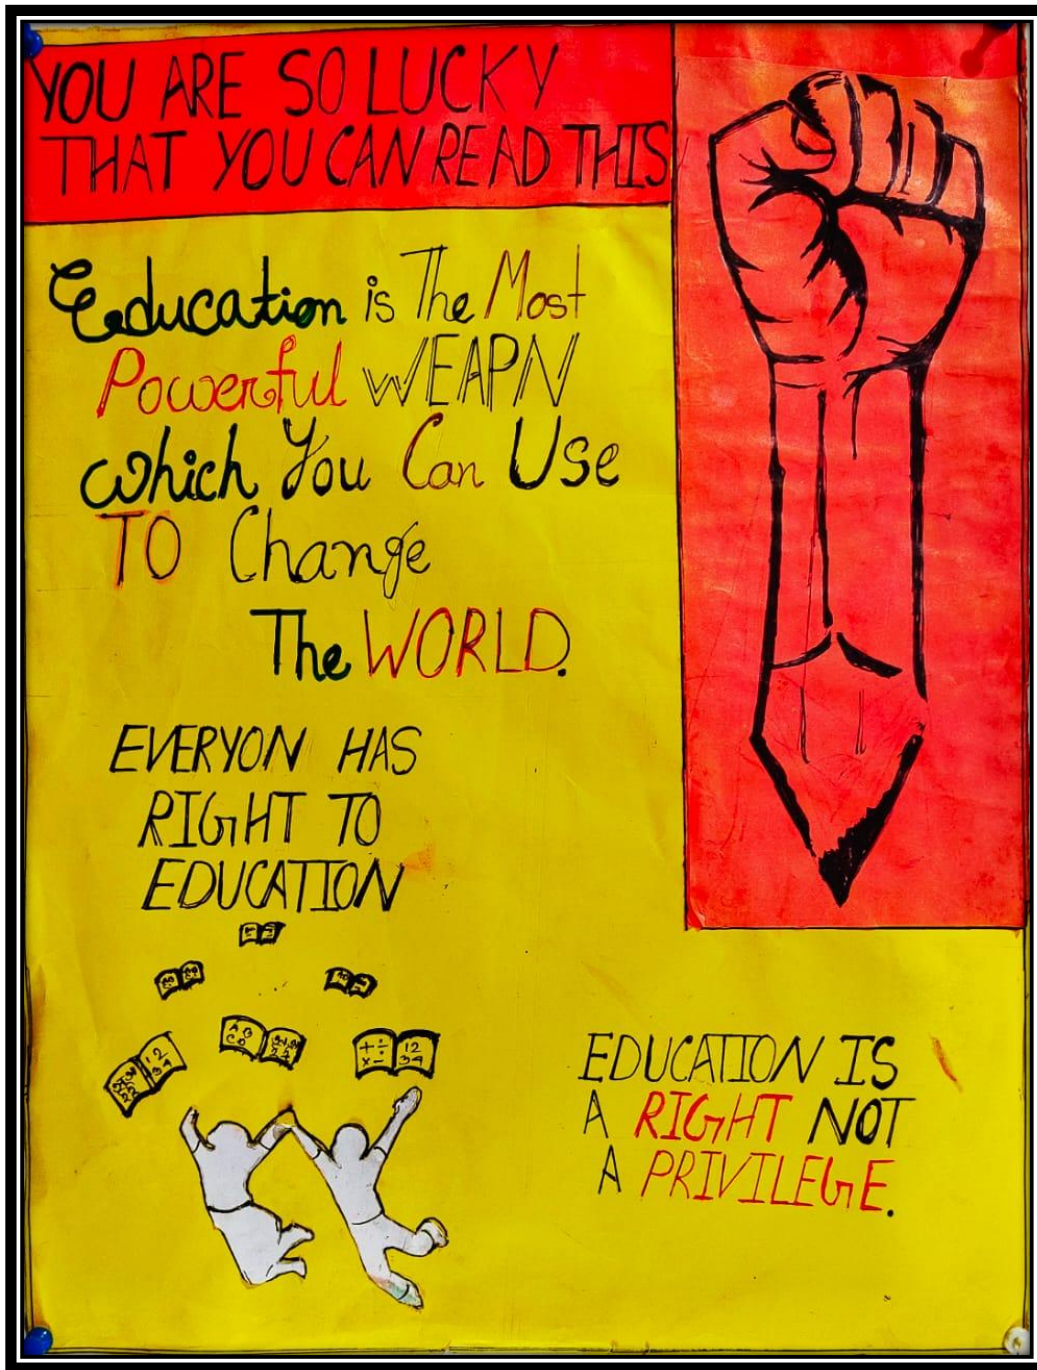 YOU ARE SO LUCKY
THAT YOU CAN READ THIS
Education is The Most
Powerful WEAPN
which You Can Use
TO Change
The WORLD.
EVERYON HAS
RIGHT TO
EDUCATION
+ ÷ 12
x - 34
EDUCATION IS
A RIGHT NOT
A PRIVILEGE.